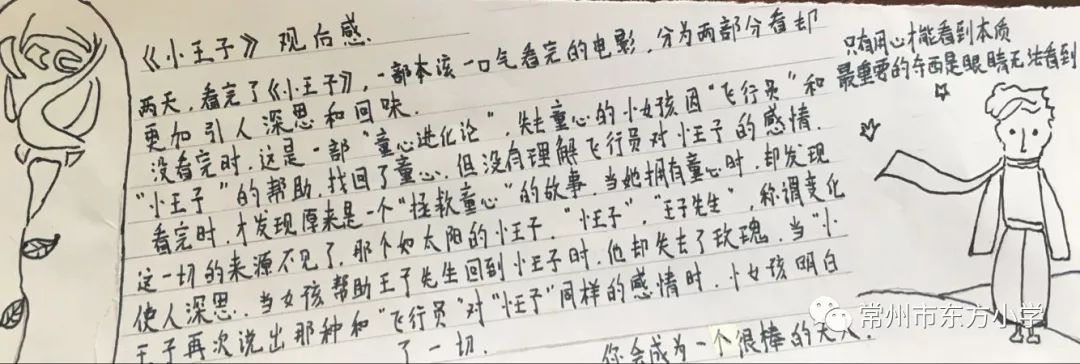 《小王子》观后感.
两天,看完了《小王子》,一部本该一口气看完的电影,分为两部分看却
更加引人深思和回味.
没看完时,这是一部“童心进化论”,失去童心的小女孩因“飞行员”和
“小王子”的帮助,找回了童心,但没有理解飞行员对小王子的感情.
看完时,才发现原来是一个“拯救童心”的故事,当她拥有童心时,却发现
这一切的来源不见了,那个如太阳的小王子,“小王子”,“王子先生”,称谓变化
使人深思.当女孩帮助王子先生回到小王子时,他却失去了玫瑰,当“小
王子再次说出那种和“飞行员”对“小王子”同样的感情时,小女孩明白
了一切.
你会成为一个很棒的大人.
只有用心才能看到本质
最重要的东西是眼睛无法看到
常州市东方小学